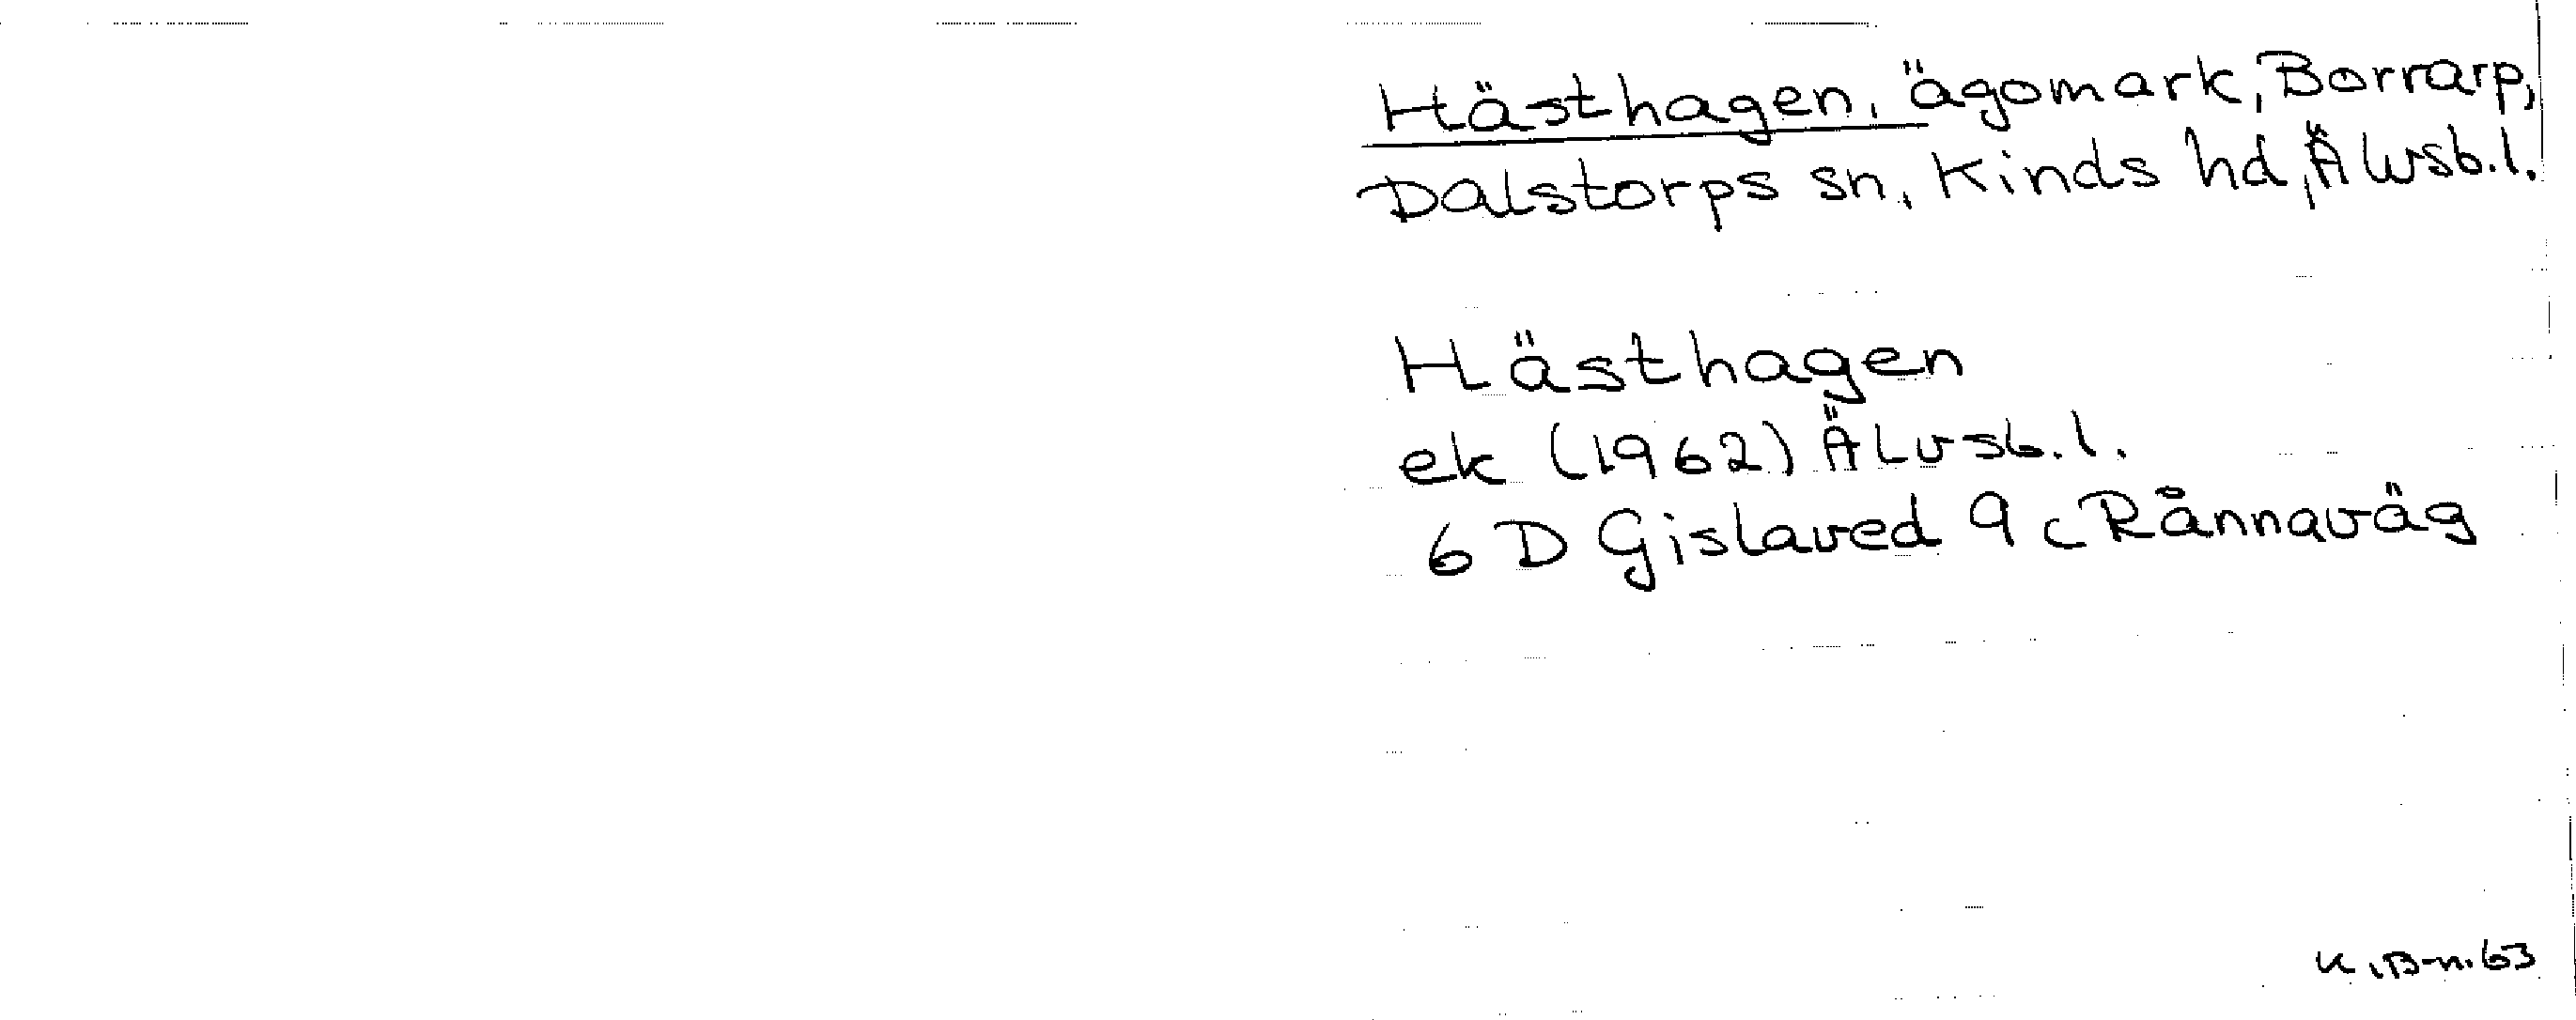 Hästhagen, ägomark, Borrarp,
Dalstorps sn, Kinds hd, Älvsb.l.
Hästhagen
ek (1962) Älvsb.l.
6 D Gislaved 9 c Rånnaväg
K.B-n.63